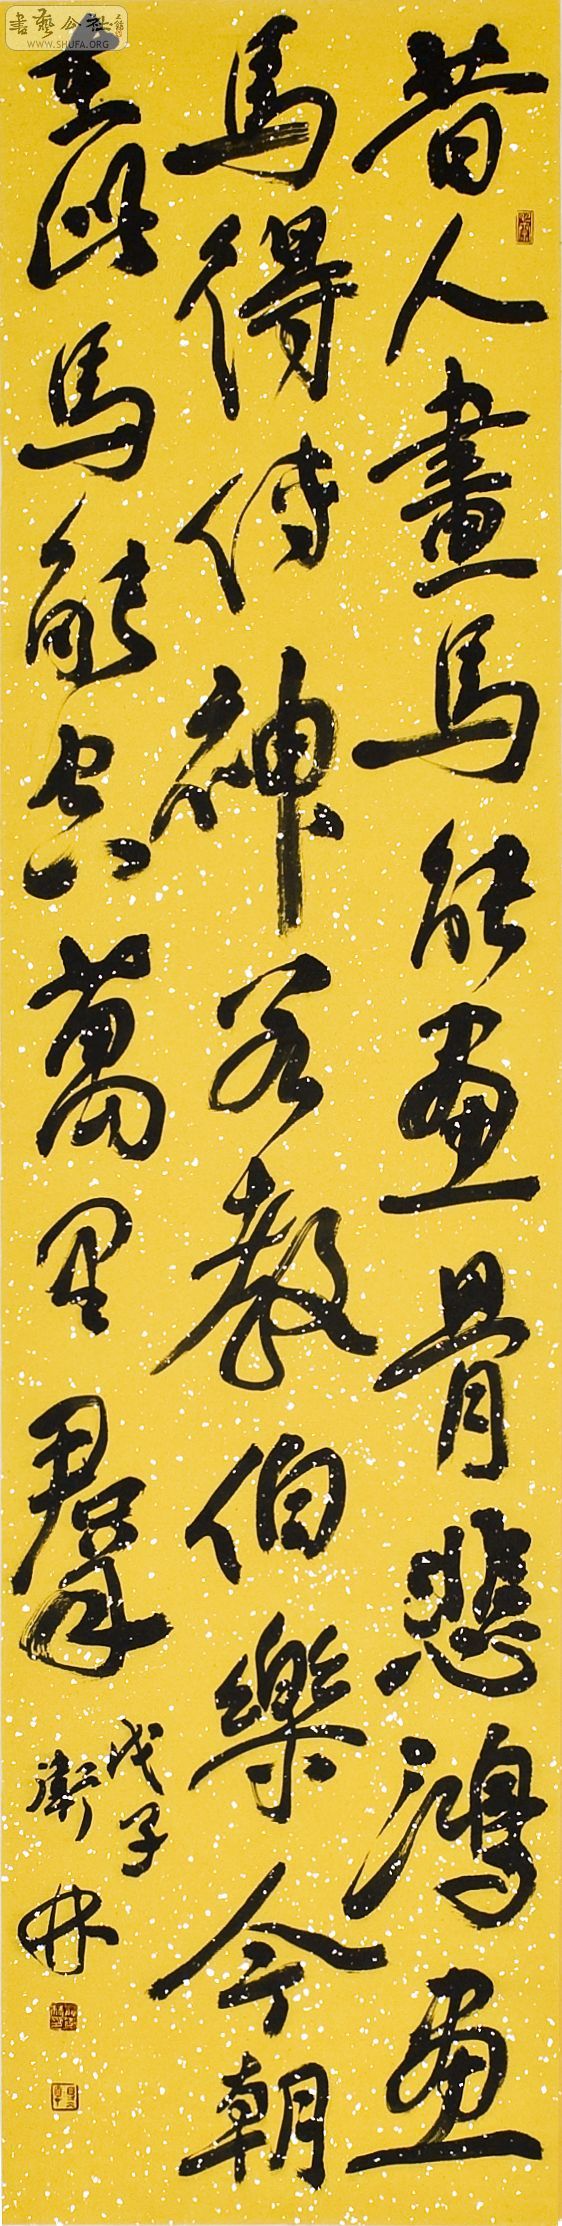 昔人畫馬能畫骨悲鴻畫
馬得傳神若教伯樂今朝
在此馬能空萬里群
戊子
衛林
書藝公社
WWW.SHUFA.ORG